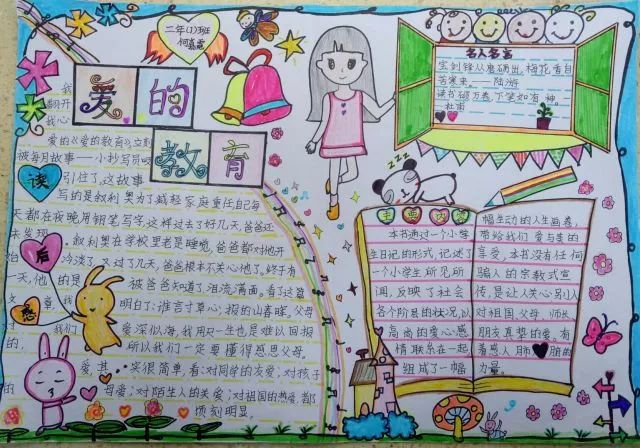 二年(1)班
何嘉露
爱的
教育
读
后
感
我
翻开
我心
爱的《爱的教育》立刻
被每月故事——小抄写员吸
引住了。这故事
写的是叙利奥为了减轻家庭重任自己每
天都在夜晚用钢笔写字。这样过去了好几天,爸爸还
未发现。叙利奥在学校里老是睡觉,爸爸都对他开
始冷淡了。又过了几天,爸爸根本不关心他了。终于有
一天,他的是
被爸爸知道了,泪流满面。看了这篇
文章,我
明白了:谁言寸草心,报的山春晖。父母
对我们
爱深似海,我用尽一生也是难以回报
的,
所以我们一定要懂得感恩父母。
爱,其
实很简单,看:对同学的友爱;对孩子
的
母爱;对陌生人的关爱;对祖国的热爱,都
顷刻明显
名人名言
宝剑锋从磨砺出,梅花香自
苦寒来。——陆游
读书破万卷,下笔如有神。—
杜甫
zzz
主要内容
本书通过一个小学
生日记的形式,记述了
一个小学生所见所
闻,反映了社会
各个阶层的状况,以
高高的爱心感
情联系在一起
组成了一幅
幅生动的人生画卷,
带给我们爱与善的
享受。本书没有任何
骗人的宗教式宣
传,是让人关心别人,以
对祖国、父母、师长
朋友真挚的爱。有
着感人肺腑的
力量。